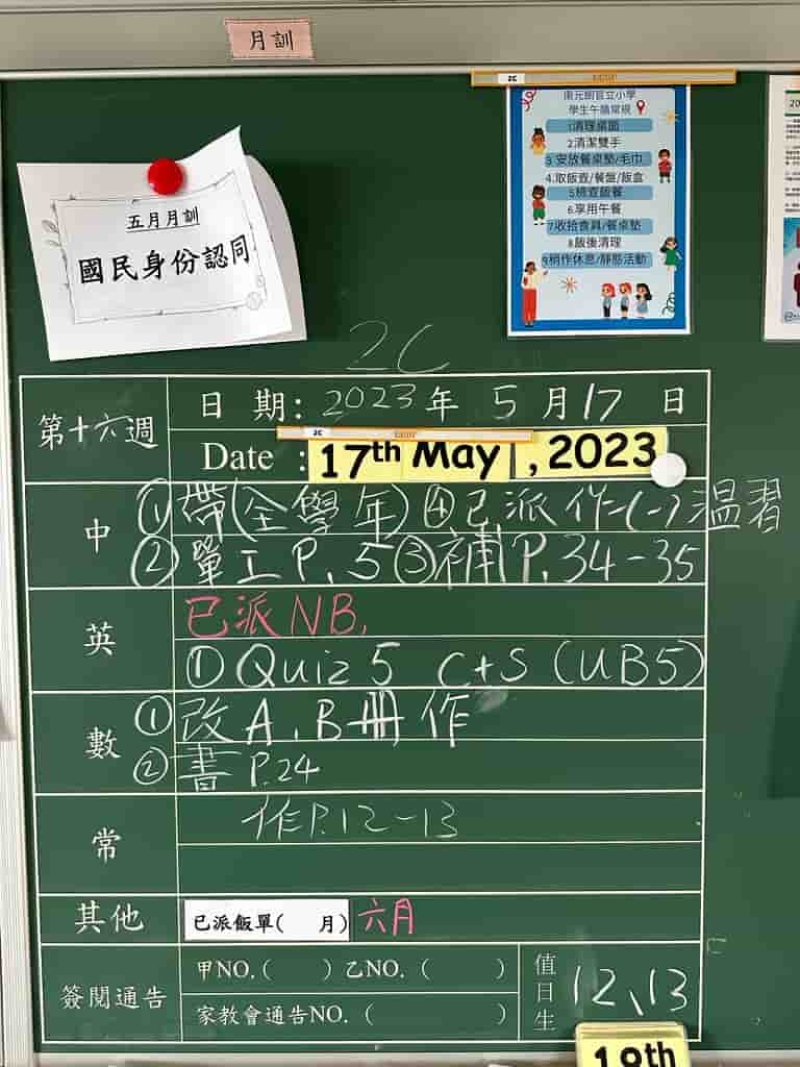 月訓
2C
學生午膳常規
1清理桌面
2清潔雙手
3 安放餐桌墊/毛巾
4.取飯壺/餐盤/飯盒
5檢查飯餐
6享用午餐
7收拾食具/餐桌墊
8飯後清理
9稍作休息/靜態活動
五月月訓
國民身份認同
2C
第十六週
日 期: 2023年 5月17 日
2C
Date : 17th May , 2023
中
①帶(全學年) ④已派作二(一)溫習
②單工P.5 ③補P.34-35
英
已派NB.
①Quiz 5 C+S (UB5)
數
①改A、B冊作
②書 P.24
常
作P.12-13
其他
已派飯單( 月) 六月
簽閱通告
甲NO.( ) 乙NO.( )
家教會通告NO.( )
值日生
12、13
18th
20